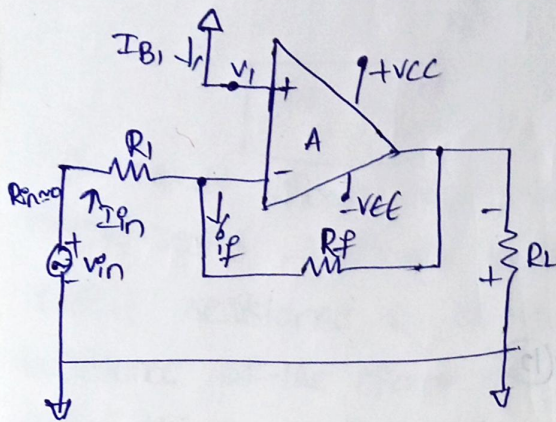 IB1
V1
+
+VCC
A
-
-VEE
R1
Rin=0
Iin
if
Rf
+
Vin
-
-
+
RL